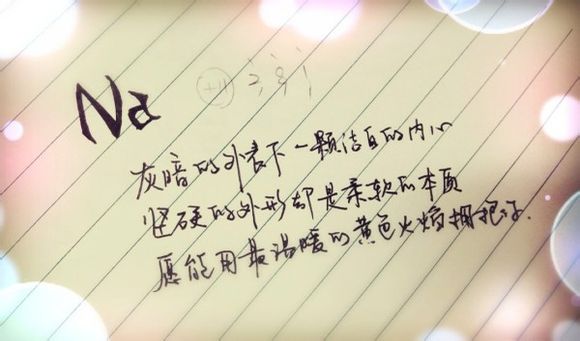 Na +11 2, 8, 1
灰暗的外表下一颗洁白的内心
坚硬的外形却是柔软的本质
愿能用最温暖的黄色火焰拥抱你.